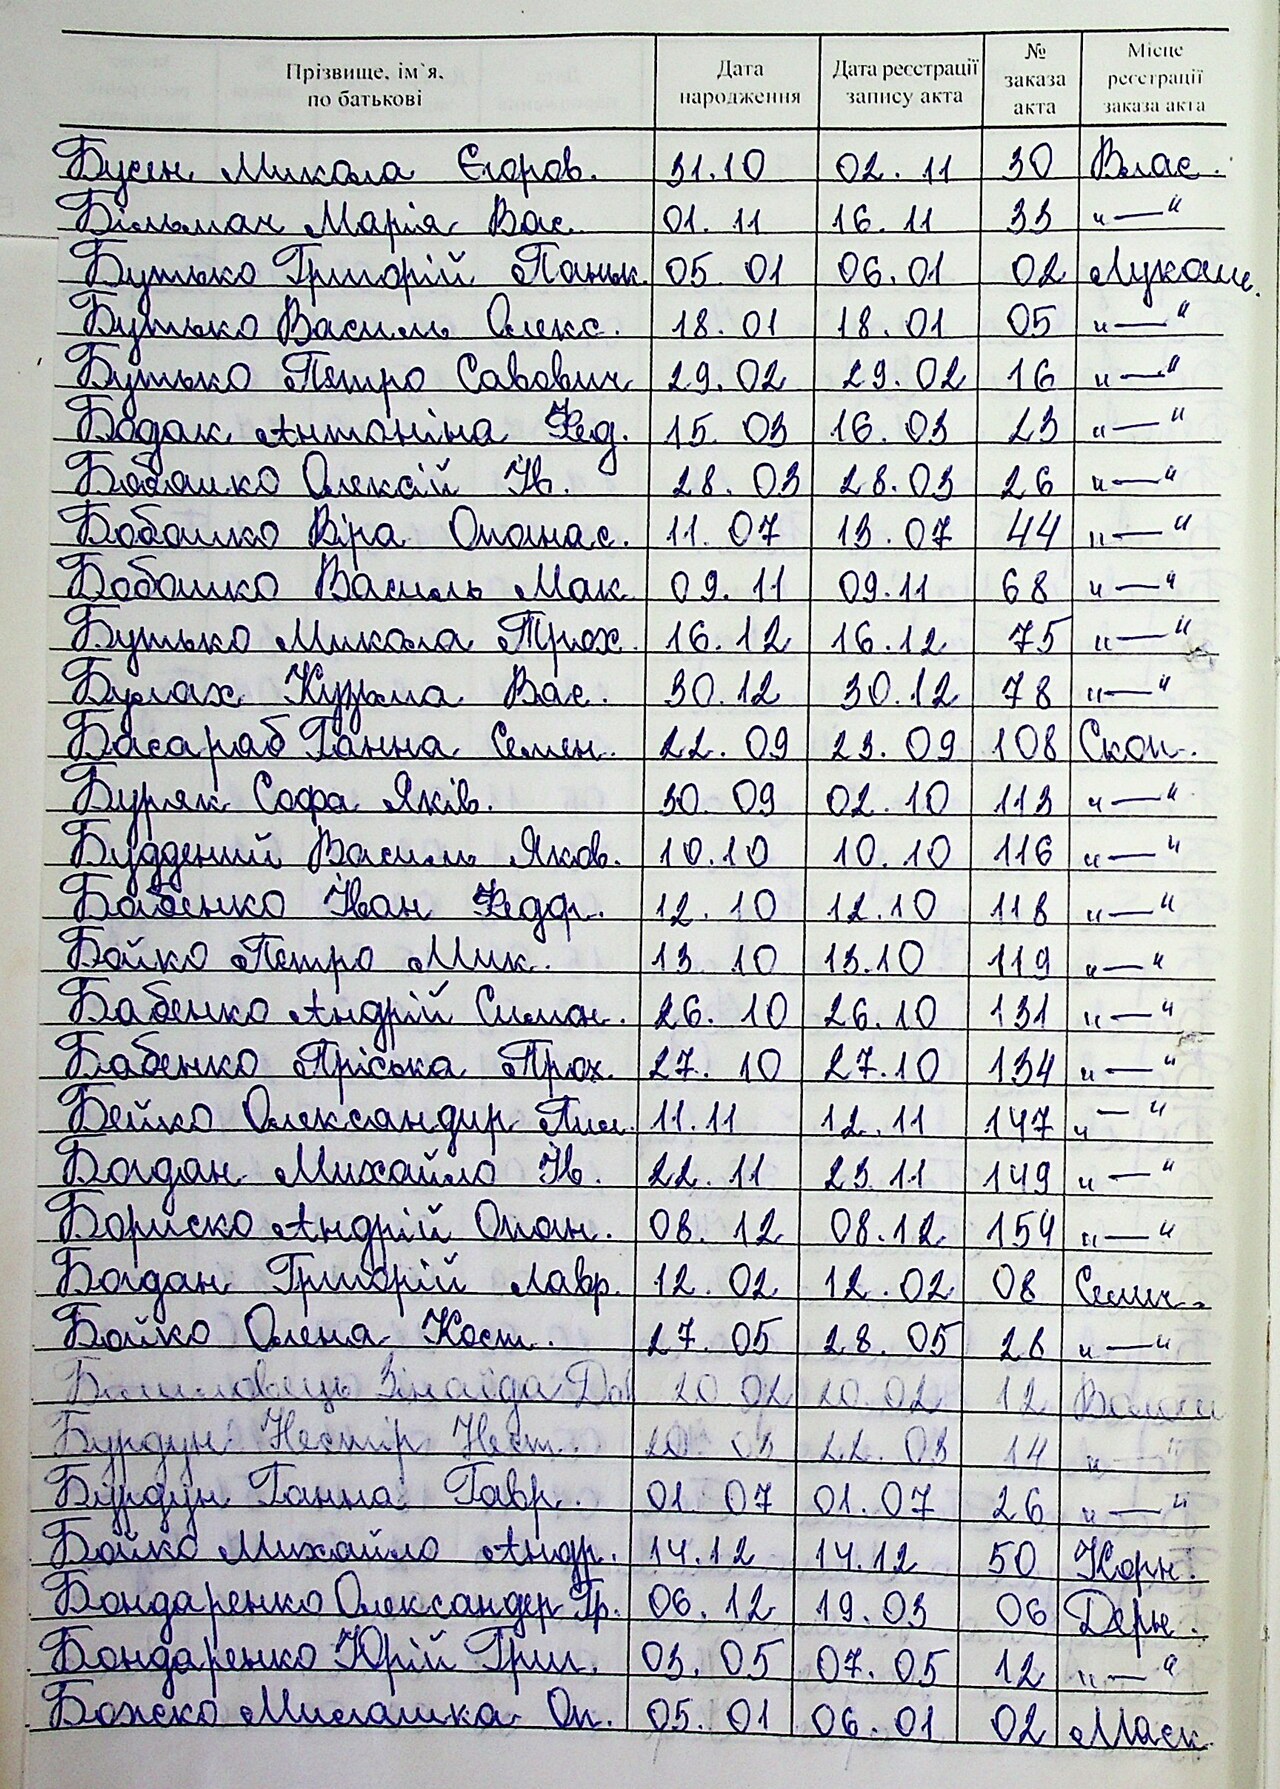 Прізвище, ім`я, по батькові Дата народження Дата реєстрації запису акта № заказа акта Місце реєстрації заказа акта
Бусен Микола Єгоров. 31.10 02.11 30 Влас.
Більмач Марія Вас. 01.11 16.11 33 "—"
Бутько Григорій Паньк. 05.01 06.01 02 Лукаш.
Бутько Василь Олекс. 18.01 18.01 05 "—"
Бутько Петро Савович 29.02 29.02 16 "—"
Бодак Антоніна Фед. 15.03 16.03 23 "—"
Бабашко Олексій Ів. 28.03 28.03 26 "—"
Бабашко Віра Опанас. 11.07 13.07 44 "—"
Бабашко Василь Мак. 09.11 09.11 68 "—"
Бутько Микола Трох. 16.12 16.12 75 "—"
Булах Кузьма Вас. 30.12 30.12 78 "—"
Басараб Ганна Семен. 22.09 23.09 108 Скоп.
Буряк Софа Яків. 30.09 02.10 113 "—"
Буддений Василь Яков. 10.10 10.10 116 "—"
Бабенко Іван Федор. 12.10 12.10 118 "—"
Бойко Петро Мик. 13.10 13.10 119 "—"
Бабенко Андрій Симон. 26.10 26.10 131 "—"
Бабенко Пріська Прох. 27.10 27.10 134 "—"
Бейко Олександир 11.11 12.11 147 "—"
Богдан Михайло Ів. 22.11 23.11 149 "—"
Бориско Андрій Опан. 08.12 08.12 154 "—"
Богдан Григорій Лавр. 12.02 12.02 08 Семен.
Бойко Олена Кост. 27.05 28.05 28 "—"
Зінаїда 20.02 20.02 12 Волош
Бурдун Нестір Нест. 20.03 22.03 14 " "
Бурдун Ганна Гавр. 01.07 01.07 26 "—"
Бойко Михайло Андр. 14.12 14.12 50 Корн.
Бондаренко Олександер Гр. 06.12 19.03 06 Дерн.
Бондаренко Юрій Григ. 03.05 07.05 12 "—"
Божко Милашка Оп. 05.01 06.01 02 Маск.